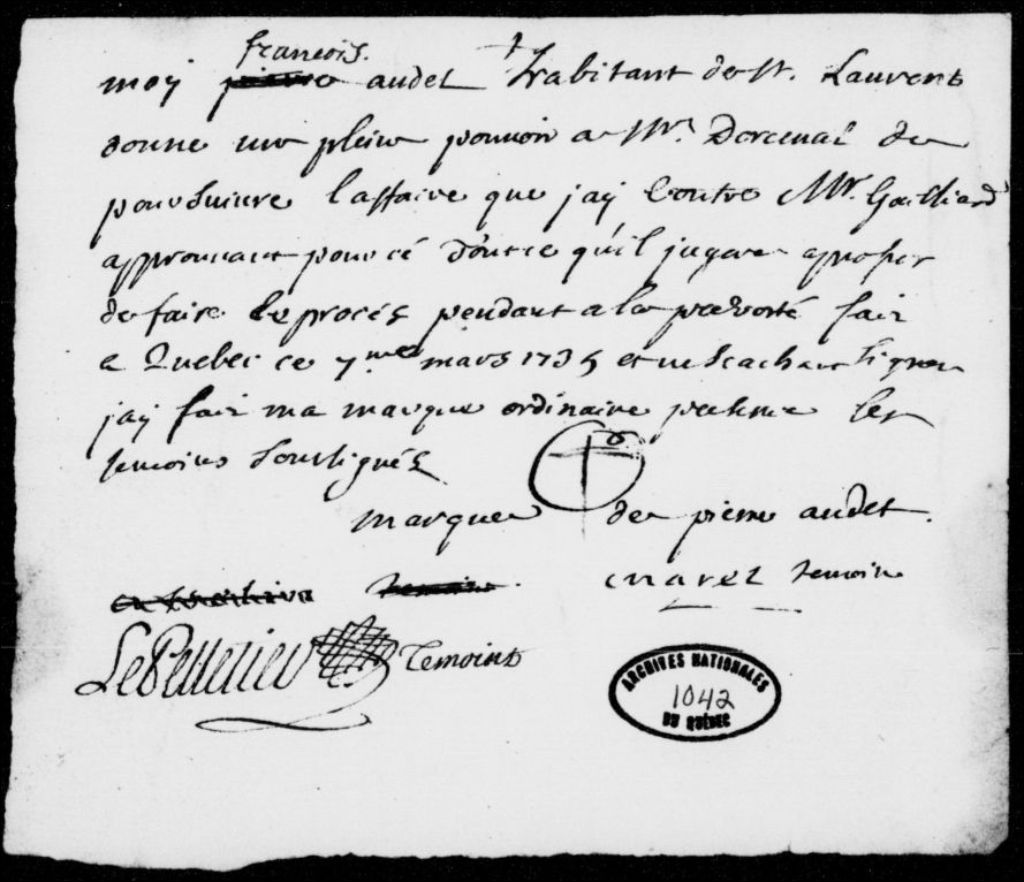 francois.
moy pierre audet habitant de St. Laurent
donne un plein pouvoir a Mr. Dorceval de
poursuivre laffaire que jay Contre Mr. Gailliard
approuvant pour cé d'out ce qu'il jugera apropos
de faire le procés pendant a la prevosté fait
a Quebec ce 7.me mars 1735 et ne scachant signer
jay fait ma marque ordinaire les
temoins soussignés
marque de pierre audet.
temoin
LePelletier Temoint
ARCHIVES NATIONALES
1042
DU QUÉBEC